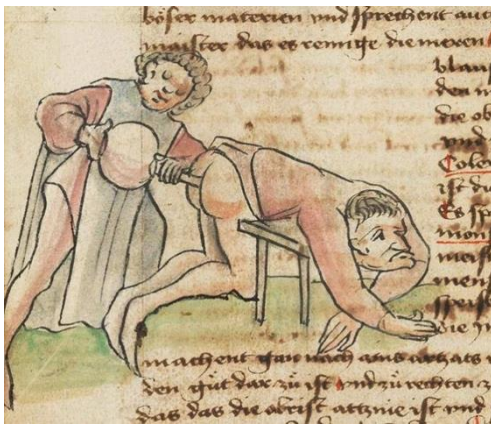 böser materien vnd sprechent auc
maister das es reinige die nieren
blau
den
die ob
vnd
Colo
ist du
Es sp
mon
meist
men
speis
die
machent gan nach ains artzats
den gůt dar zů ist vnd zů rechten z
das das die obrist artznie ist vnd